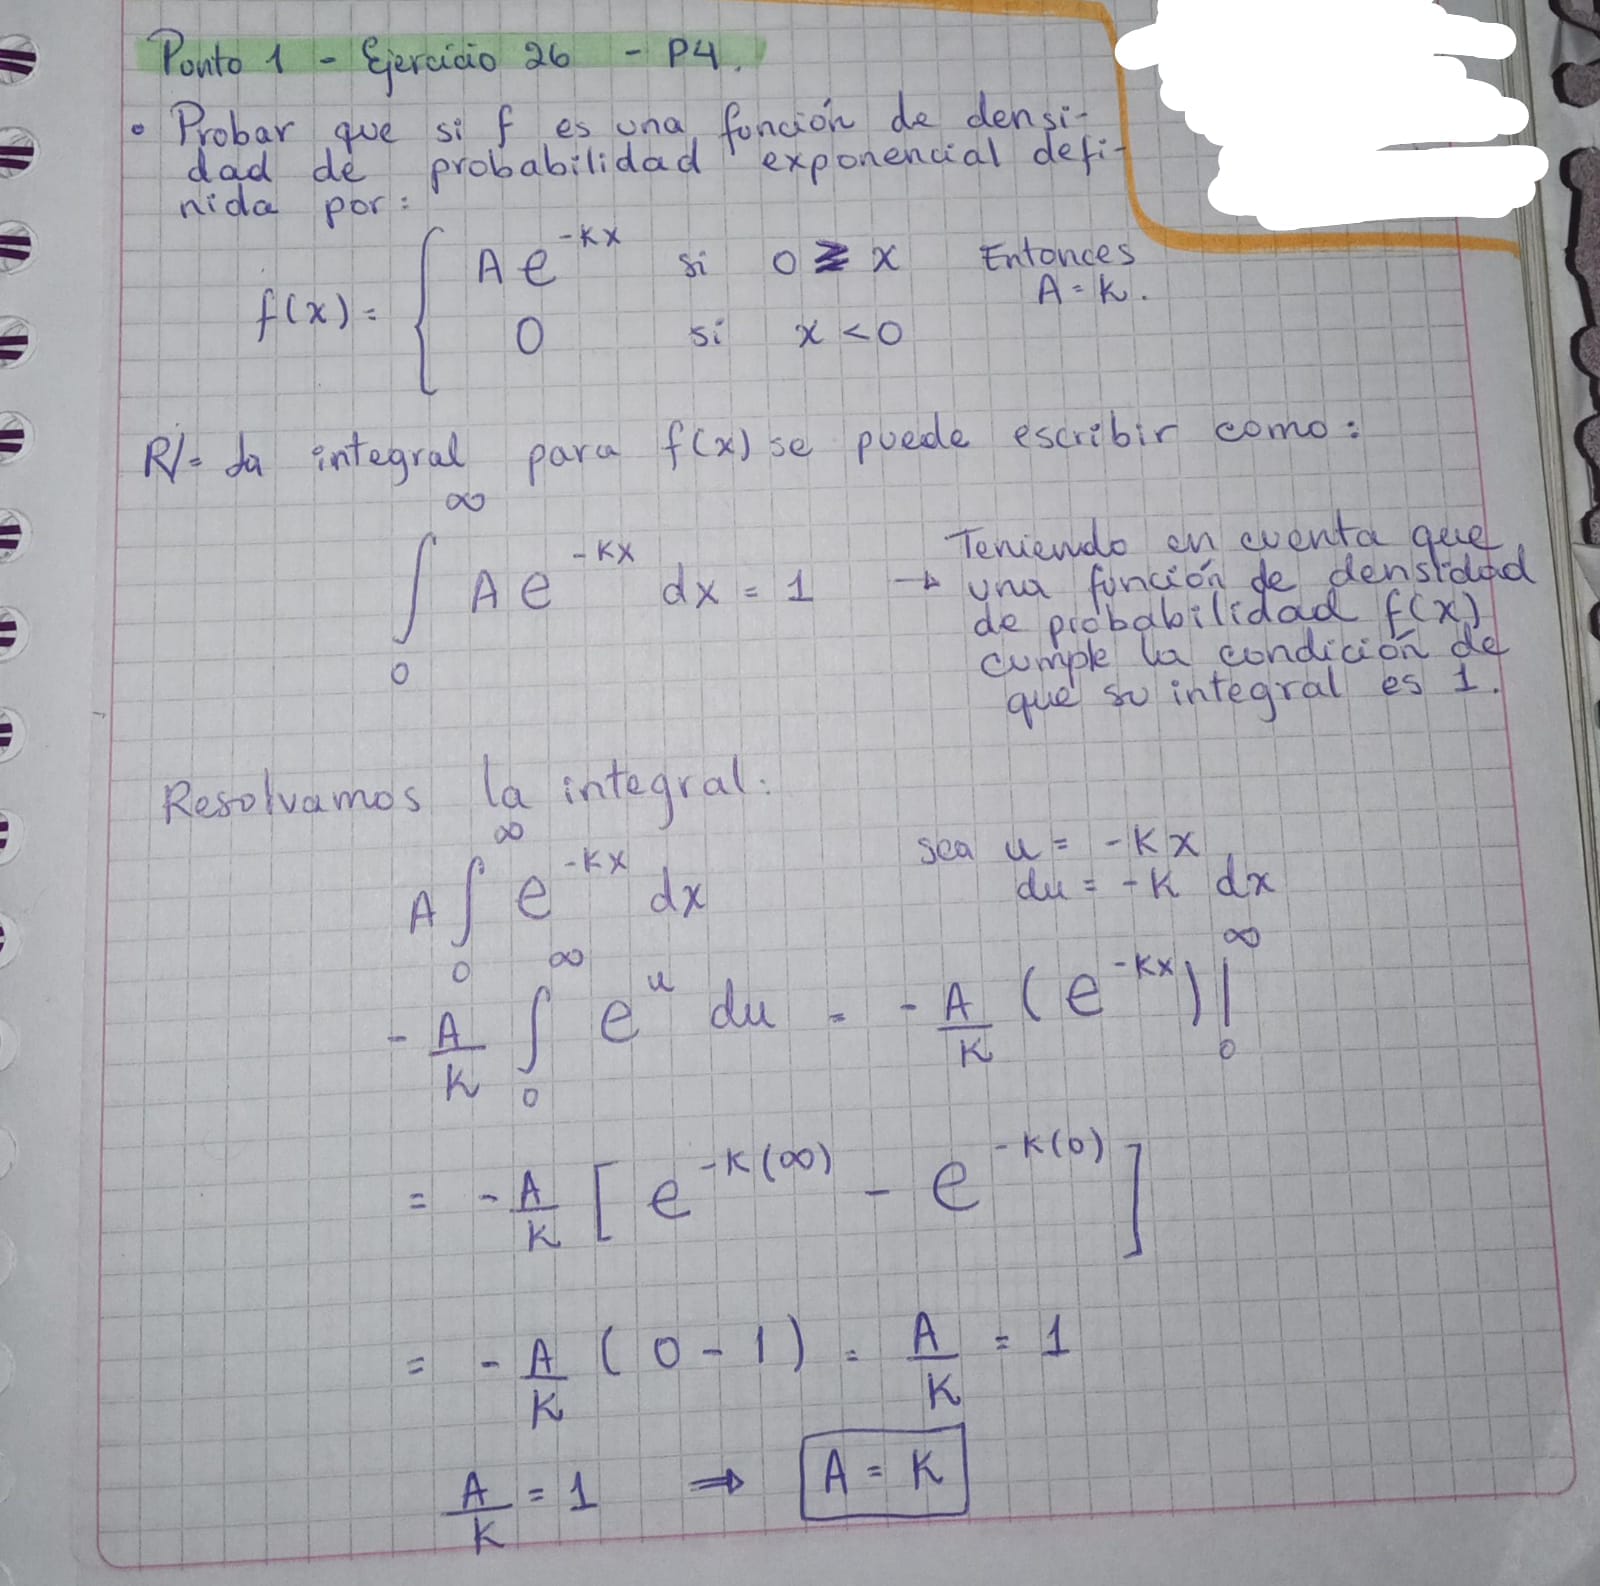 Punto 1 - Ejercicio 26 - P4.
• Probar que si f es una función de densi-
dad de probabilidad exponencial defi-
nida por:
f(x) = { A e^{-Kx} si 0 ≥ x Entonces
A = K.
0 si x < 0
R/= La integral para f(x) se puede escribir como:
∫_0^∞ A e^{-Kx} dx = 1 → Teniendo en cuenta que
una función de densidad
de probabilidad f(x)
cumple la condición de
que su integral es 1.
Resolvamos la integral:
A ∫_0^∞ e^{-Kx} dx sea u = -Kx
du = -K dx
- A/K ∫_0^∞ e^u du = - A/K (e^{-Kx}) |_0^∞
= - A/K [ e^{-K(∞)} - e^{-K(0)} ]
= - A/K ( 0 - 1 ) = A/K = 1
A/K = 1 ⇒ A = K